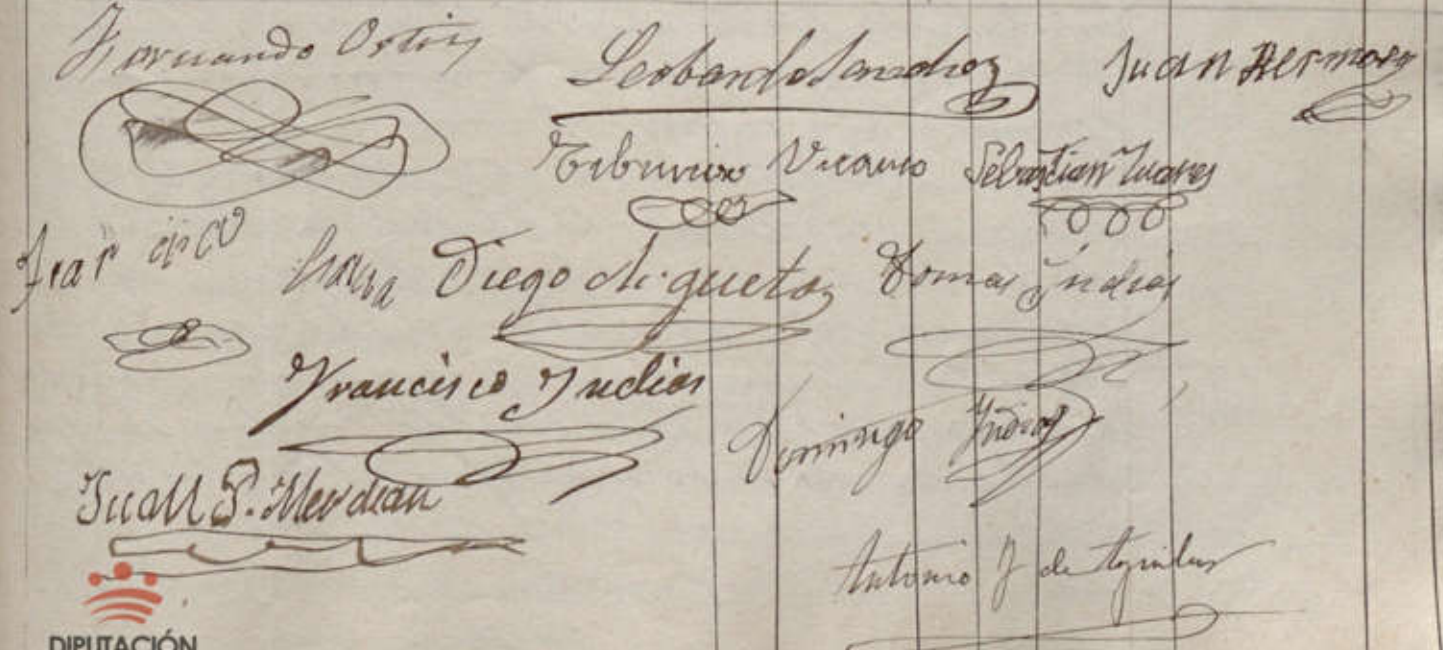 Fernando Ortiz
Leobardo Sanchez
Juan Hermoso
Tiburcio Vicario
Sebastian Juares
Diego
Tomas Indias
Francisco Indias
Domingo Indias
Juan P. Merchan
Antonio J de
DIPUTACIÓN